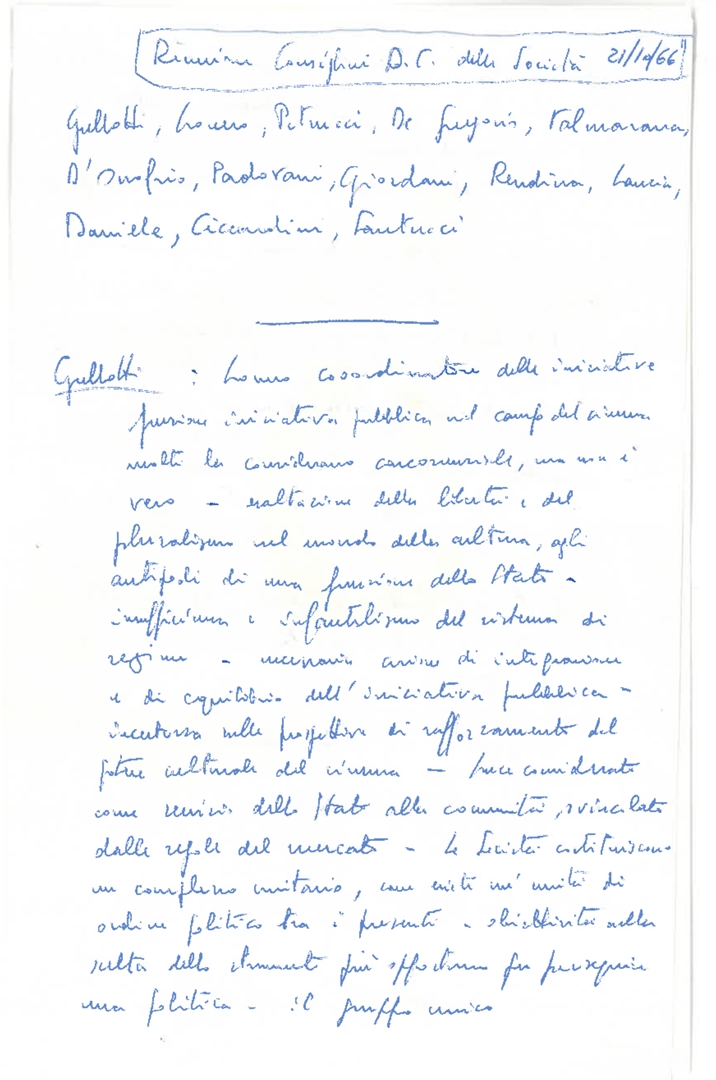 Riunione Consiglieri D.C. delle Società 21/10/66
Gullotti, Lonero, Petrucci, De Gregoris, Valmarana,
D'Onofrio, Padovani, Giordani, Rendina, Lancia,
Daniele, Ciccardini, Santucci
Gullotti : Lonero coordinatore delle iniziative
funzione iniziativa pubblica nel campo del cinema
molti la considerano concorrenziale, ma non è
vero - esaltazione della libertà e del
pluralismo nel mondo della cultura, agli
antipodi di una funzione dello Stato -
insufficienza e infantilismo del sistema di
regime - necessaria azione di integrazione
e di equilibrio dell'iniziativa pubblica -
incertezza sulle prospettive di rafforzamento del
potere culturale del cinema - considerato
come servizio dello Stato alla comunità, svincolato
dalle regole del mercato - Le Società costituiscono
un complesso unitario, come esiste un'unità di
ordine politico tra i presenti - obiettività nella
scelta dello strumento più opportuno per perseguire
una politica - il gruppo unico